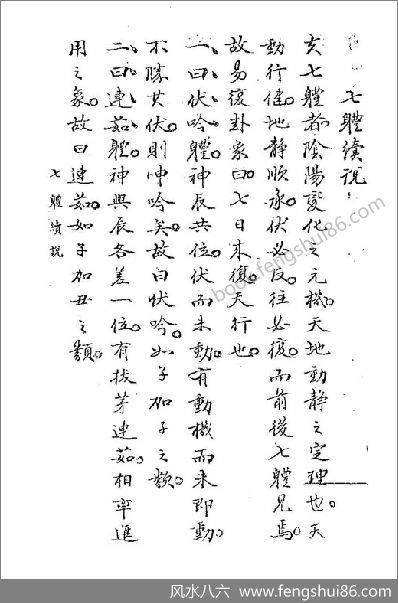 七體續說
夫七體者陰陽變化之元機天地動靜之定理也。天
動行健。地靜順承。伏必反。往必復。而前後七體見焉。
故易復卦彖曰。七日來復。天行也。
一、曰伏吟體。神辰共位。伏而未動。有動機而未即動。
不勝其伏。則呻吟矣。故曰伏吟。如子加子之類。
二、曰連茹體。神與辰各差一位。有拔茅連茹。相率進
用之象。故曰連茹。如子加丑之類。
七體續說
book.fengshui86.com
风水八六 www.fengshui86.com